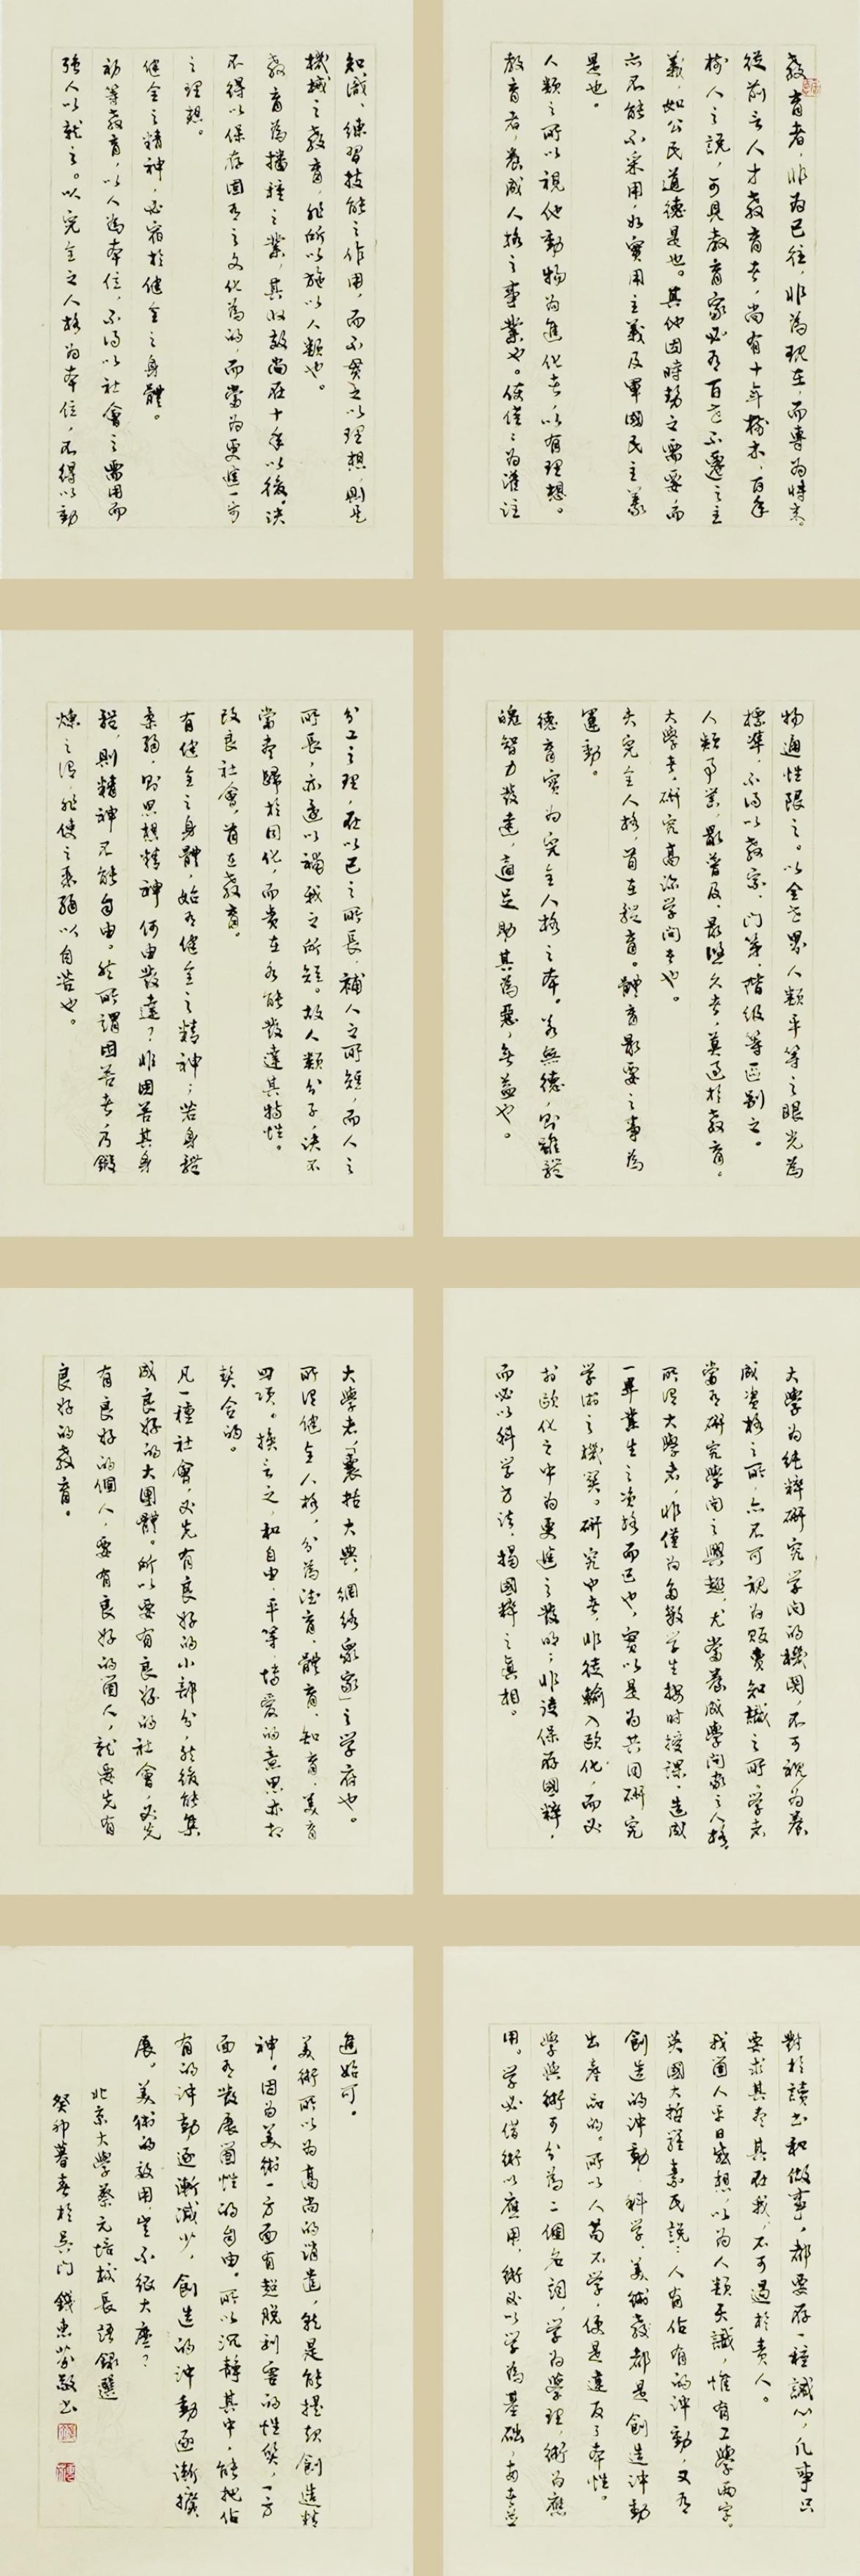 教育者，非為已往，非為現在，而專為將來。
從前言人才教育者，尚有十年樹木，百年
樹人之說，可見教育家必有百世不遷之主
義，如公民道德是也。其他因時勢之需要，而
亦不能不采用，如實用主義及軍國民主義
是也。
人類之所以視他動物為進化者，以有理想。
教育者，養成人格之事業也。使僅僅為灌注
知識、練習技能之作用，而不貫之以理想，則是
機械之教育，非所以施以人類也。
教育為播種之業，其收效尚在十年以後。決
不得以保存固有之文化為的，而當為更進一步
之理想。
健全之精神，必宿於健全之身體。
初等教育，以人為本位，不得以社會之需用而
強人以就之。以完全之人格為本位，不得以動
物通性限之。以全世界人類平等之眼光為
標準，不得以教宗、门第、階級等區別之。
人類事業，最普及、最悠久者，莫過於教育。
大學者，研究高深学问者也。
夫完全人格，首在體育。體育最要之事為
運動。
德育實為完全人格之本。若無德，則雖體
魄智力發達，適足助其為惡，無益也。
分工之理，在以己之所長，補人之所短，而人之
所長，亦還以補我之所短。故人類分子，決不
當盡歸於同化，而貴在各能發達其特性。
改良社會，首在教育。
有健全之身體，始有健全之精神；若身體
柔弱，則思想精神何由發達？非困苦其身
體，則精神不能自由。然所謂困苦者，乃鍛
煉之謂，非使之柔弱以自苦也。
大學為純粹研究学问的機關，不可視為養
成資格之所，亦不可視為販賣知識之所。学者
當有研究學问之興趣，尤當養成學问家之人格。
所謂大學者，非僅為多數学生按時授課，造成
一畢業生之資格而已也，實以是為共同研究
学術之機關。研究也者，非徒輸入歐化，而必
於歐化之中為更進之發明；非徒保存國粹，
而必以科学方法，揭國粹之真相。
大學者，「囊括大典，網絡眾家」之学府也。
所謂健全人格，分為德育、體育、知育、美育
四項。換言之，和自由、平等、博愛的意思亦相
契合的。
凡一種社會，必先有良好的小部分，然後能集
成良好的大團體。所以要有良好的社會，必先
有良好的個人，要有良好的個人，就要先有
良好的教育。
對於讀书和做事，都要存一種誠心，凡事只
要求其盡其在我，不可過於責人。
我個人平日感想，以為人類天職，惟有工學兩字。
英國大哲羅素氏說：人有佔有的沖動，又有
創造的沖動，科学、美術教都是創造沖動
出產品的。所以人苟不学，便是違反了本性。
學與術可分為二個名詞，学為學理，術為應
用。学必借術以應用，術必以学為基础，兩者並
進始可。
美術所以為高尚的消遣，就是能提起創造精
神。因为美術一方面有超脫利害的性質，一方
面有發展個性的自由。所以沉靜其中，能把佔
有的沖動逐漸減少，創造的沖動逐漸擴
展。美術的效用，豈不很大麼？
北京大學蔡元培校長語錄選
癸卯暮春於吳门 錢惠芬敬书